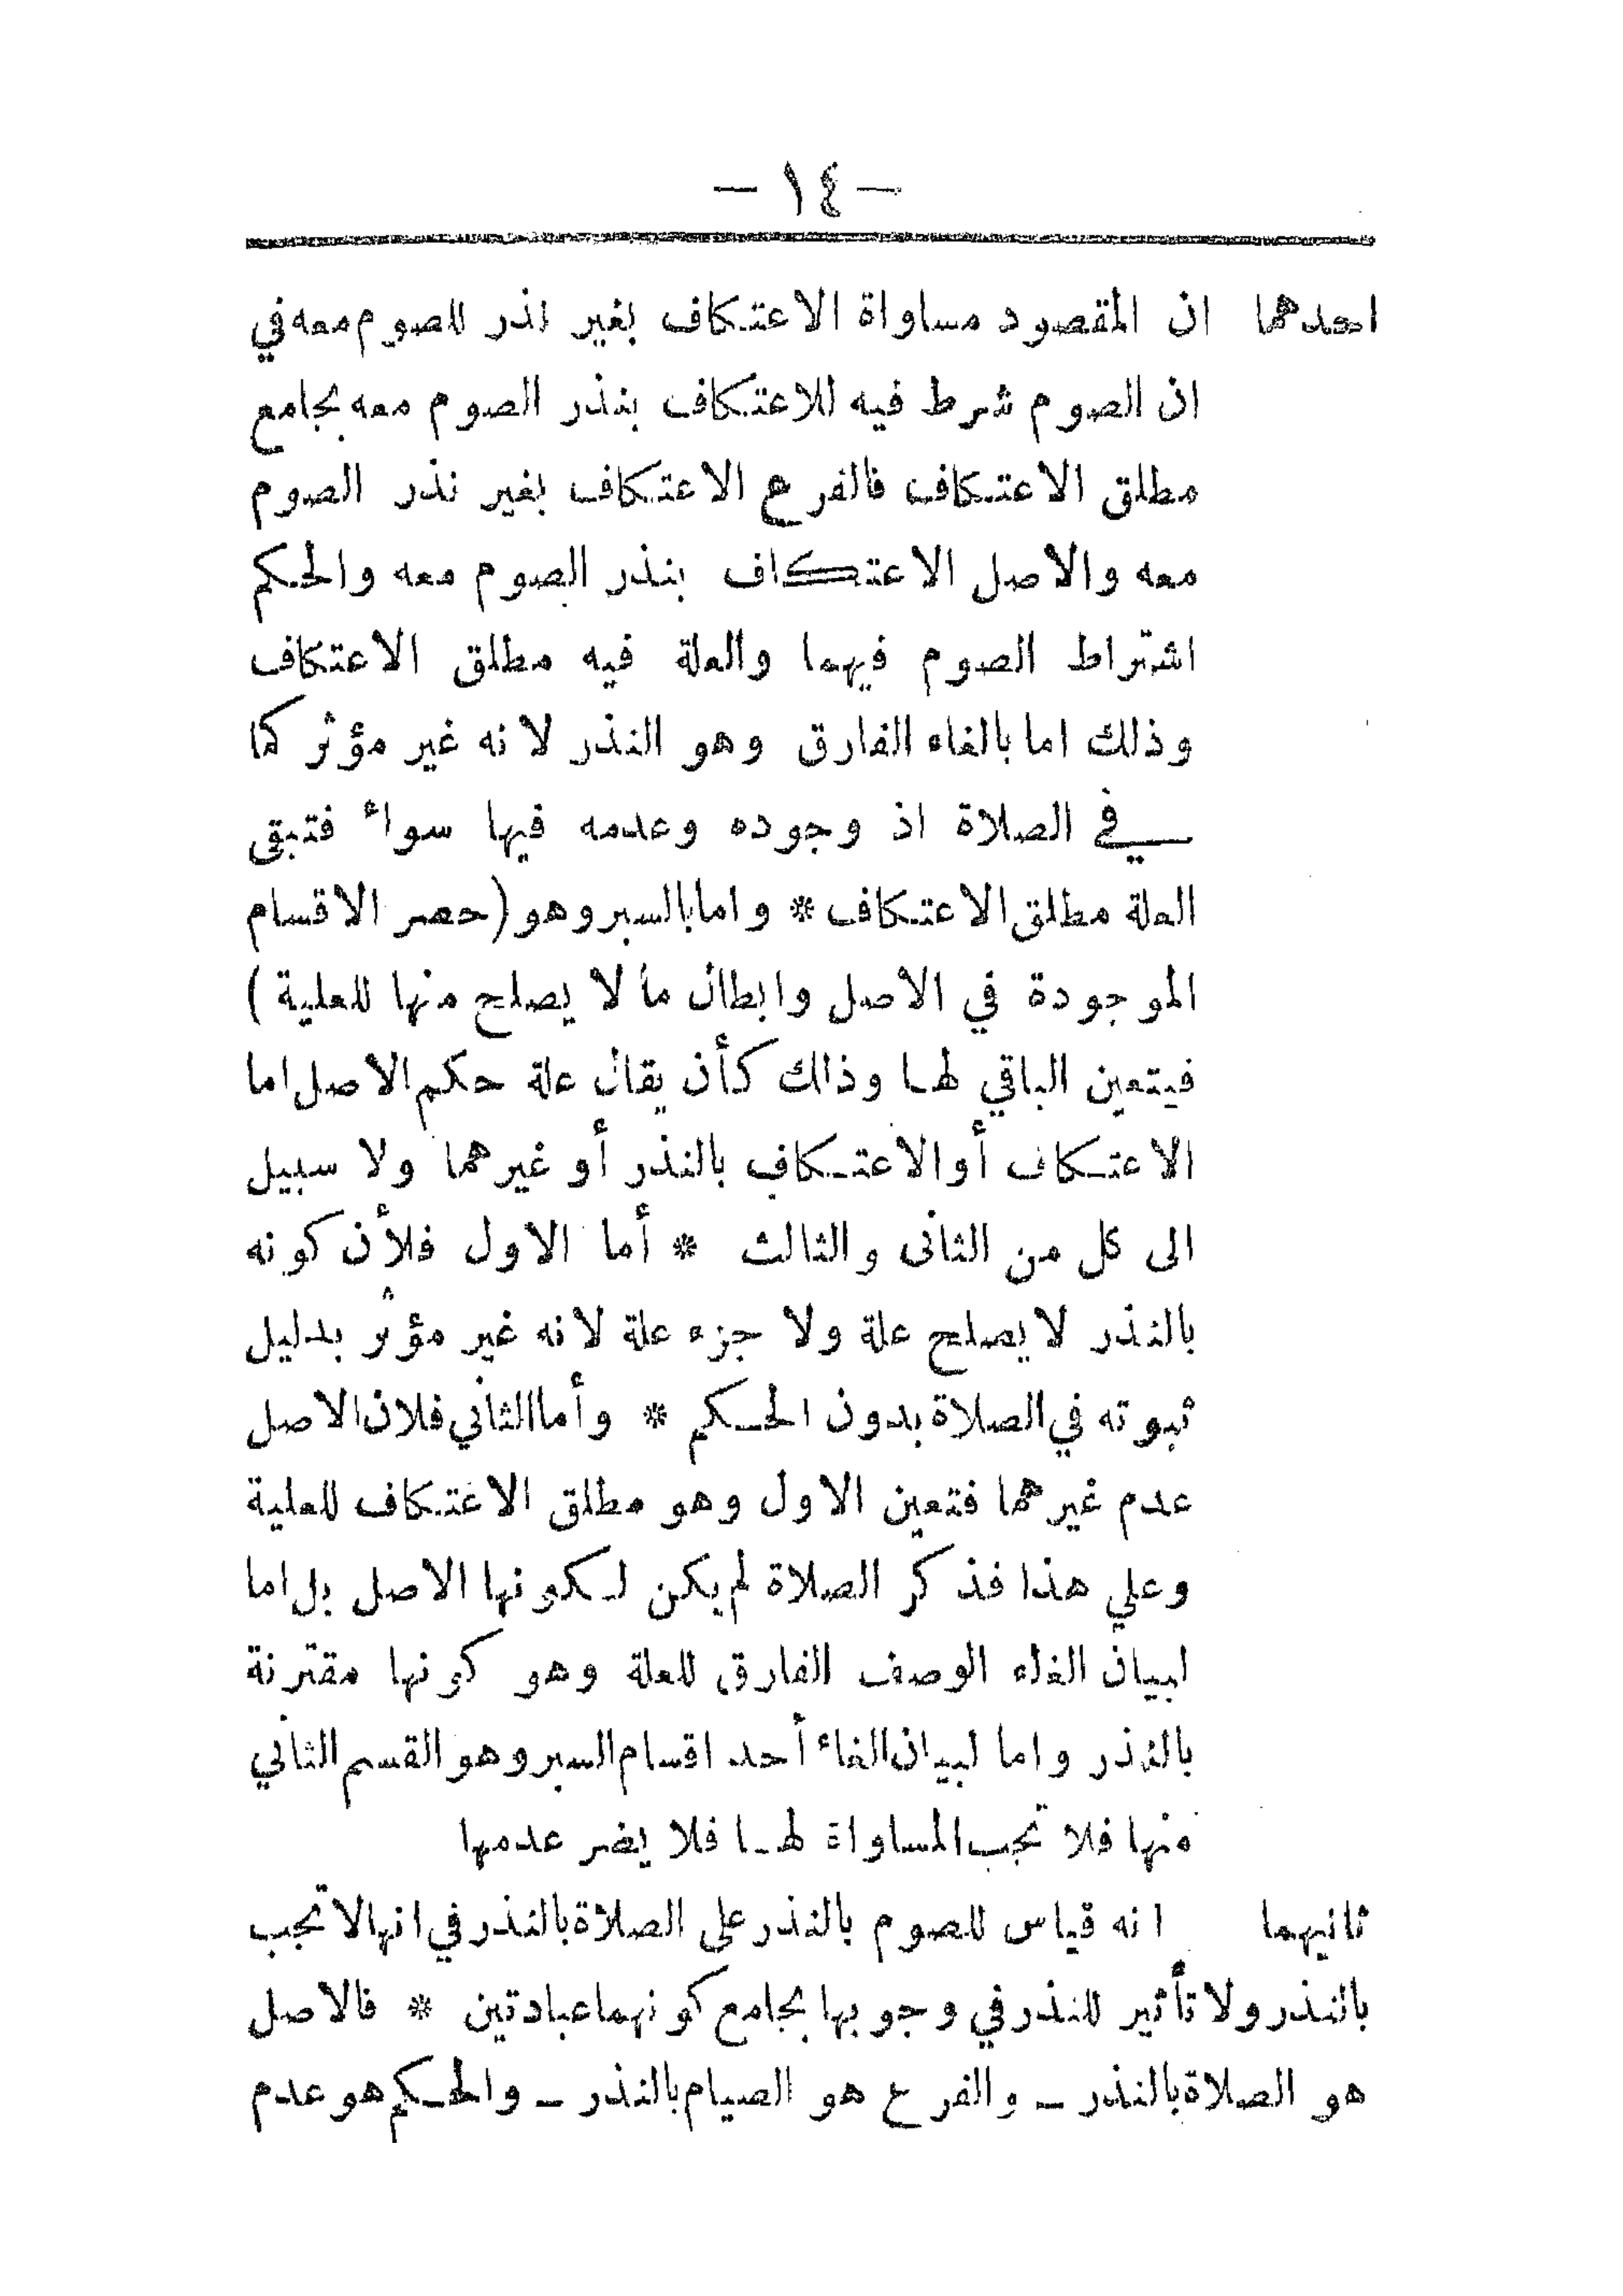 — ١٤ —
احدهما ان المقصود مساواة الاعتكاف بغير نذر للصوم معه في
ان الصوم شرط فيه للاعتكاف بنذر الصوم معه بجامع
مطلق الاعتكاف فالفرع الاعتكاف بغير نذر الصوم
معه والاصل الاعتكاف بنذر الصوم معه والحكم
اشتراط الصوم فيهما والعلة فيه مطلق الاعتكاف
وذلك اما بالغاء الفارق وهو النذر لانه غير مؤثر كما
في الصلاة اذ وجوده وعدمه فيها سواء فتبقى
العلة مطلق الاعتكاف * واما بالسبر وهو (حصر الاقسام
الموجودة في الاصل وابطال ما لا يصلح منها للعلية)
فيتعين الباقي لها وذلك كأن يقال علة حكم الاصل اما
الاعتكاف أو الاعتكاف بالنذر أو غيرهما ولا سبيل
الى كل من الثانى والثالث * أما الاول فلأن كونه
بالنذر لا يصلح علة ولا جزء علة لانه غير مؤثر بدليل
ثبوته في الصلاة بدون الحكم * وأما الثاني فلان الاصل
عدم غيرهما فتعين الاول وهو مطلق الاعتكاف للعلية
وعلي هذا فذكر الصلاة لم يكن لكونها الاصل بل اما
لبيان الغاء الوصف الفارق للعلة وهو كونها مقترنة
بالنذر واما لبيان الغاء أحد اقسام السبر وهو القسم الثاني
منها فلا تجب المساواة لها فلا يضر عدمها
ثانيهما انه قياس للصوم بالنذر على الصلاة بالنذر في انها لا تجب
بالنذر ولا تأثير للنذر في وجوبها بجامع كونهما عبادتين * فالاصل
هو الصلاة بالنذر ـ والفرع هو الصيام بالنذر ـ والحكم هو عدم